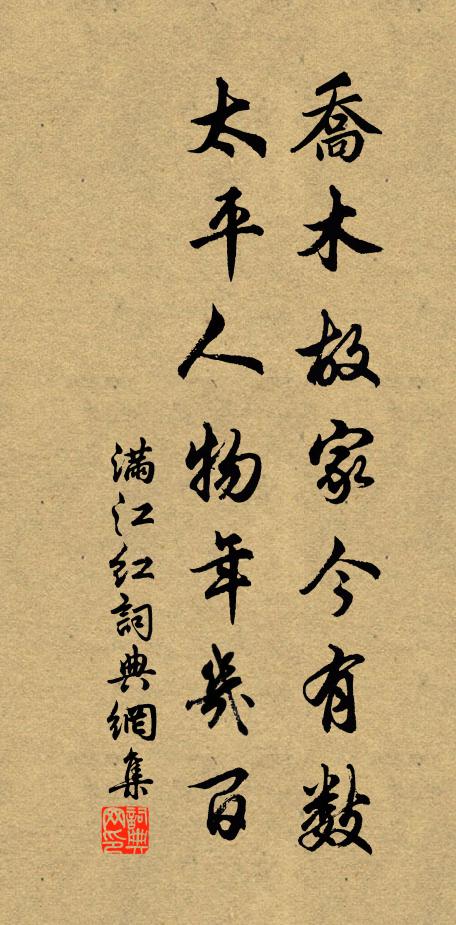 喬木故家今有數
太平人物年幾百
滿江紅詞典網集
詞典網印